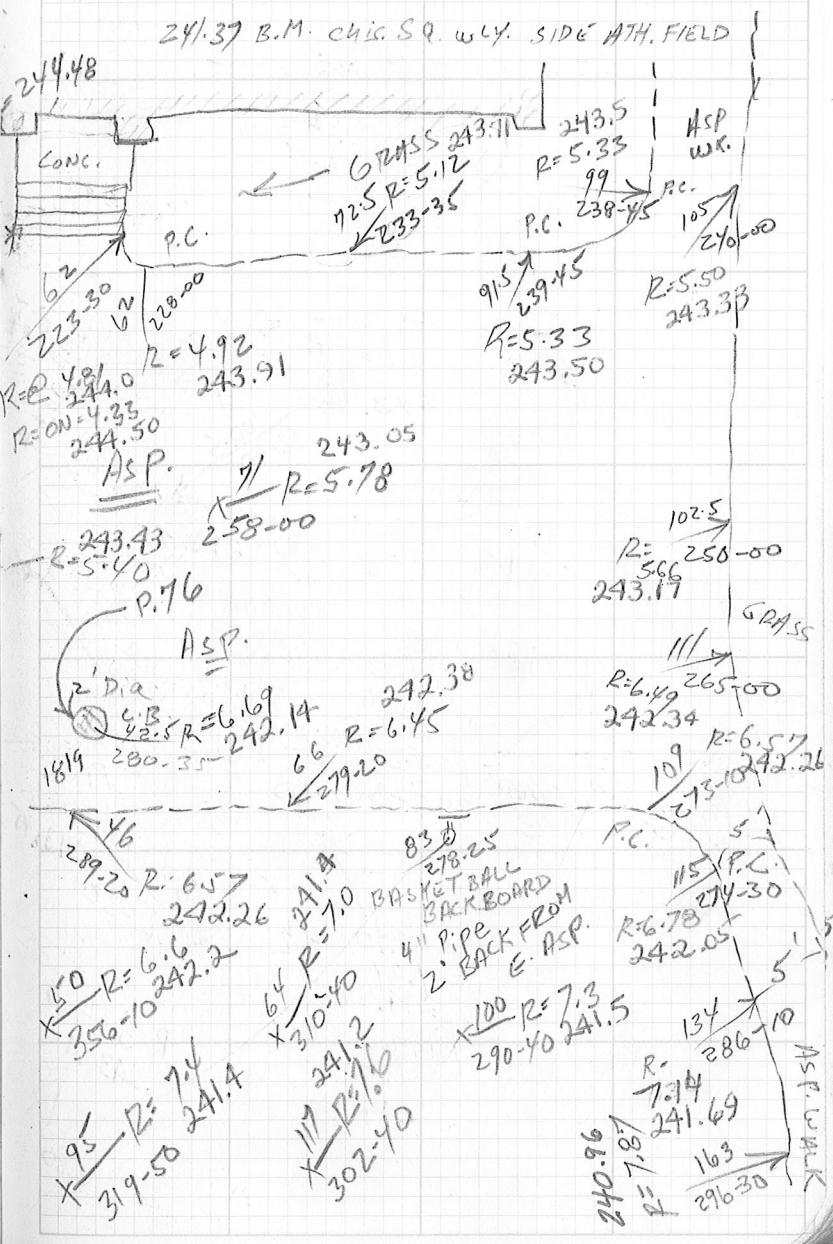 241.37 B.M. chis. SQ. WLY. SIDE ATH. FIELD
=244.48
CONC.
GRASS 243.71
72.5 R=5.12
233-35
243.5
R=5.33
99
238-45
P.C.
ASP
WK.
105
240-00
R=5.50
243.33
P.C.
P.C.
62
223-30
62
228-00
91.5
239-45
R=4.92
243.91
R=5.33
243.50
R=@ 4.81
244.0
R=ON=4.33
244.50
ASP.
243.05
71
X R=5.78
258-00
243.43
R=5.40
102.5
R=
5.66 250-00
243.17
P.76
ASP.
GRASS
111
R=6.49 265-00
242.34
2' Dia
C.B.
42.5 R=6.69
242.14
280-35
242.38
66 R=6.45
279-20
1819
109 R=6.57
273-10 242.26
P.C.
46
289-20
R=6.57
242.26
83
278-25
BASKETBALL
BACKBOARD
4" Pipe
2' BACK FROM
E. ASP.
5'
115 P.C.
274-30
R=6.78
242.05
50
X R=6.6
356-10 242.2
241.4
64 R=7.0
X 310-40
100
X R=7.3
290-40 241.5
5'
5'
134
286-10
R=
7.14
241.69
95
X R=7.4
319-50 241.4
241.2
117 R=7.6
X 302-40
R=7.87
240.96
163
296-30
ASP. WALK